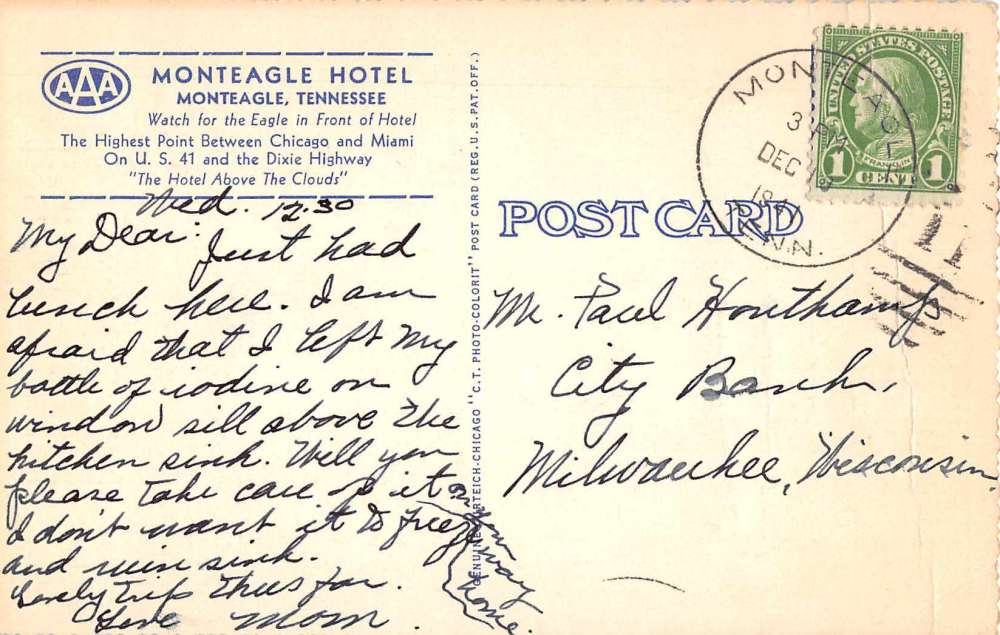 AAA
MONTEAGLE HOTEL
MONTEAGLE, TENNESSEE
Watch for the Eagle in Front of Hotel
The Highest Point Between Chicago and Miami
On U. S. 41 and the Dixie Highway
"The Hotel Above The Clouds"
Wed. 12.30
My Dear: Just had
lunch here. I am
afraid that I left my
bottle of iodine on
window sill above the
kitchen sink. Will you
please take care of it on your way home.
I don't want it to freeze
and ruin sink.
Lovely trip thus far.
Love Mom.
GENUINE CURTEICH-CHICAGO "C.T. PHOTO-COLORIT" POST CARD (REG. U.S. PAT. OFF.)
POST CARD
MONTEAGLE
3 PM
DEC
TENN.
UNITED STATES POSTAGE
FRANKLIN
1 CENT 1
Mr. Paul
City Bank,
Milwaukee, Wisconsin.